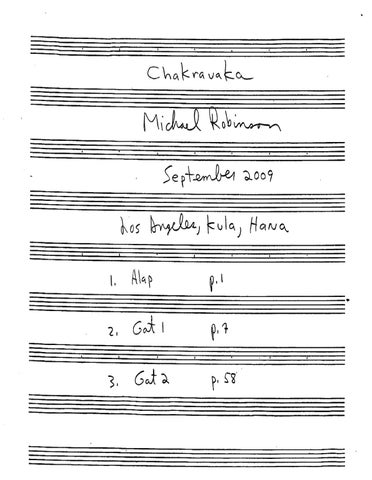 Chakravaka
Michael Robinson
September 2009
Los Angeles, Kula, Hana
1. Alap p.1
2. Gat 1 p.7
3. Gat 2 p.58